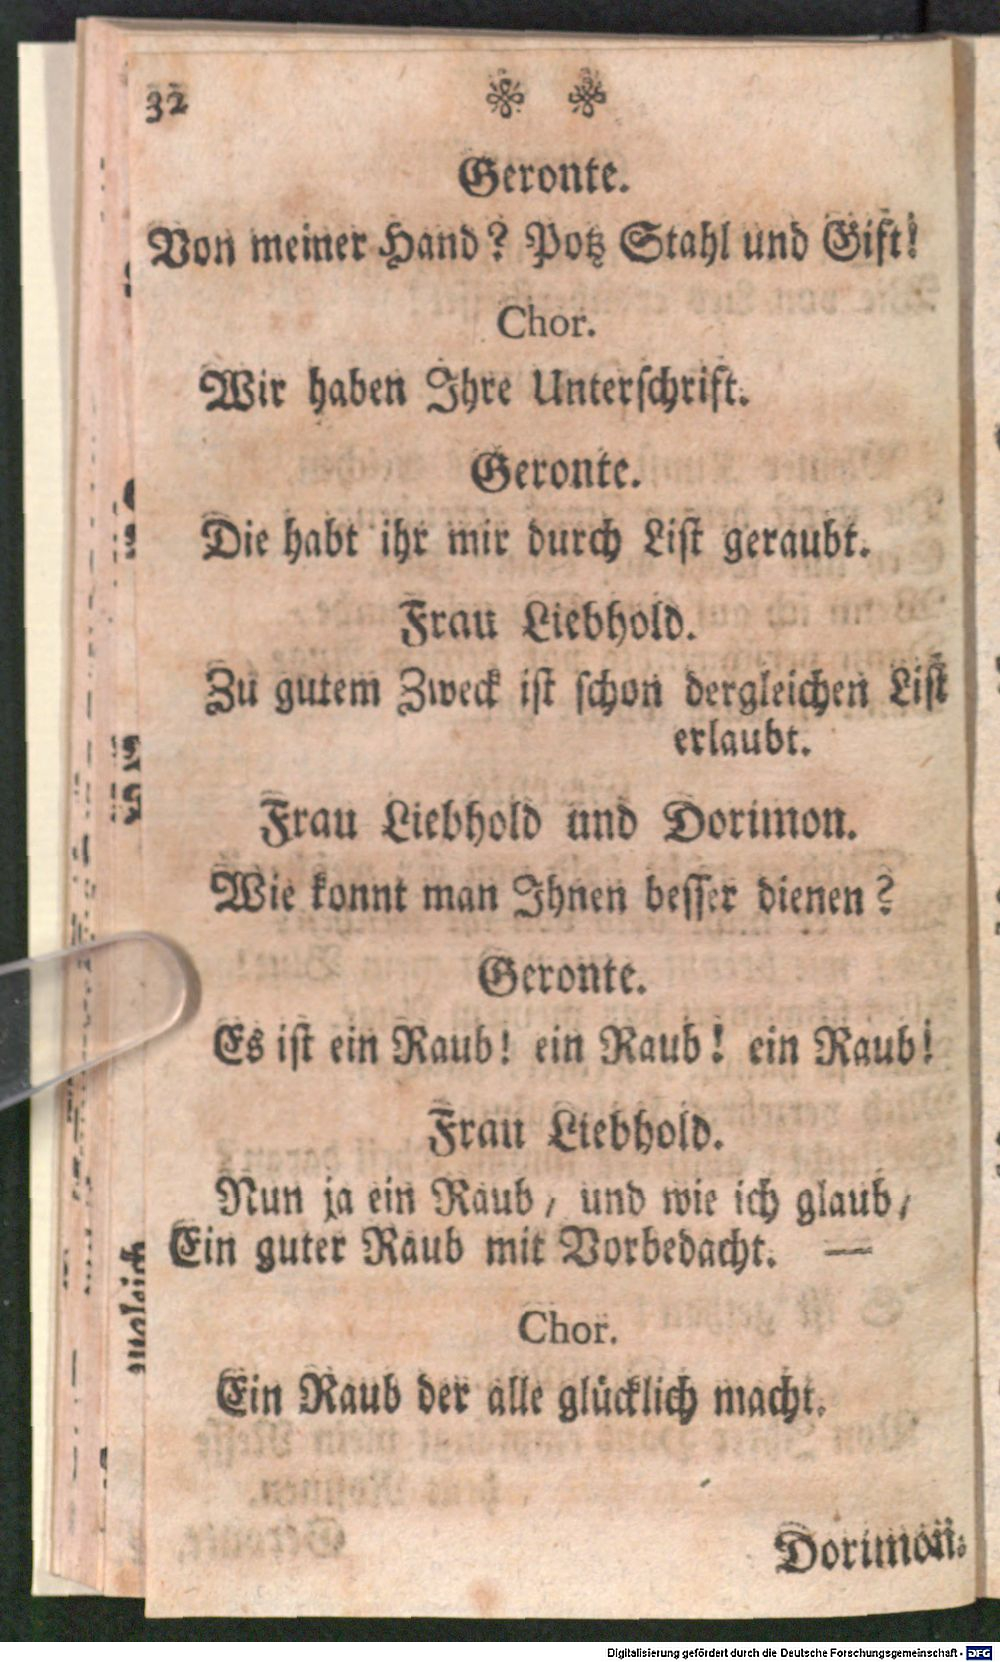 32
Geronte.
Von meiner Hand? Potz Stahl und Gift!
Chor.
Wir haben Ihre Unterschrift.
Geronte.
Die habt ihr mir durch List geraubt.
Frau Liebhold.
Zu gutem Zweck ist schon dergleichen List
erlaubt.
Frau Liebhold und Dorimon.
Wie konnt man Ihnen besser dienen?
Geronte.
Es ist ein Raub! ein Raub! ein Raub!
Frau Liebhold.
Nun ja ein Raub, und wie ich glaub,
Ein guter Raub mit Vorbedacht. —
Chor.
Ein Raub der alle glücklich macht.
Dorimon.
Digitalisierung gefördert durch die Deutsche Forschungsgemeinschaft - DFG